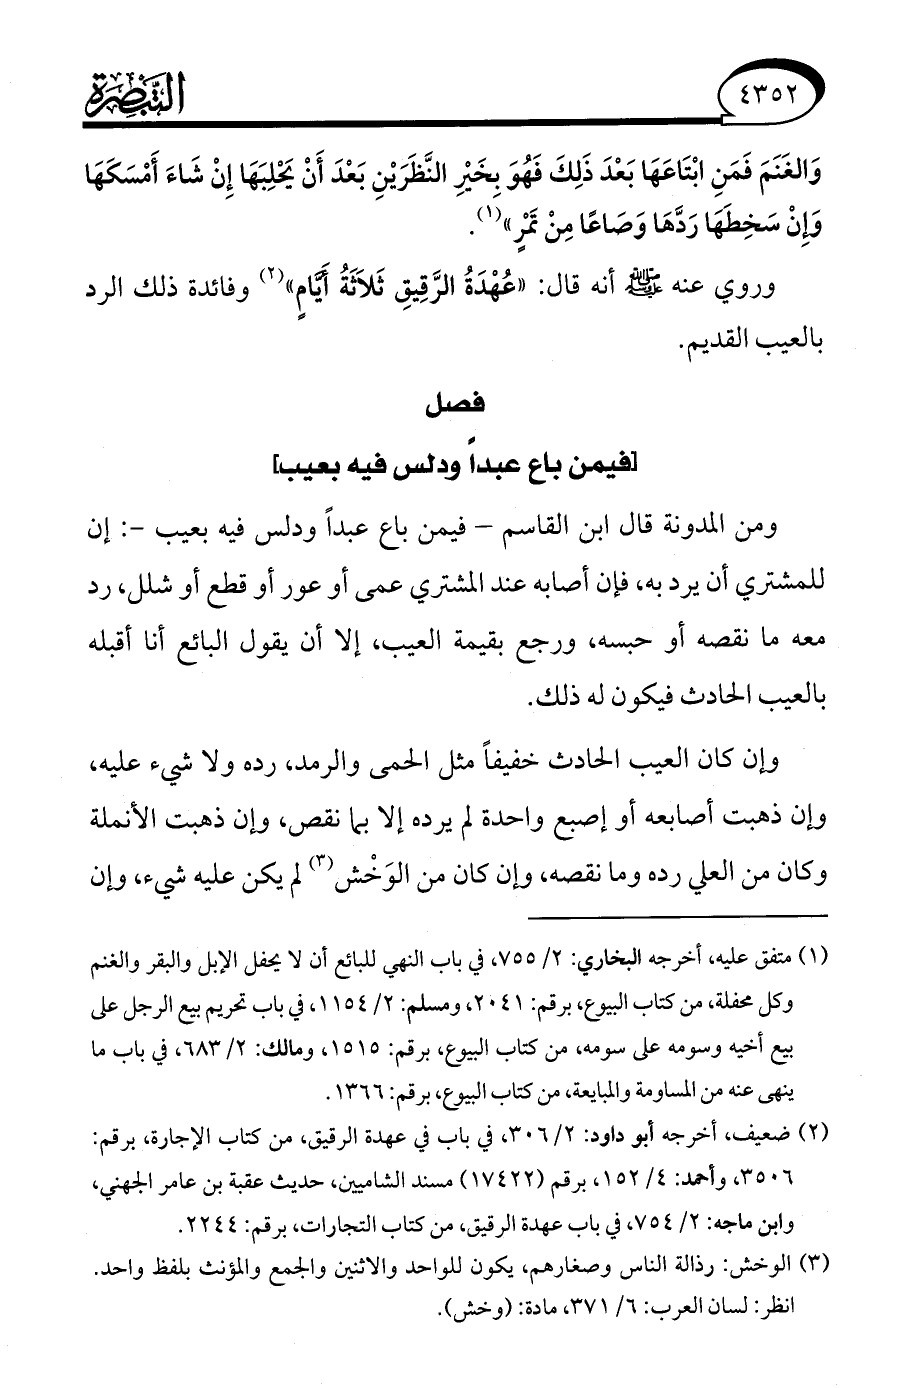 ٤٣٥٢
التبصرة
وَالغَنَمَ فَمَنِ ابْتَاعَهَا بَعْدَ ذَلِكَ فَهُوَ بِخَيْرِ النَّظَرَيْنِ بَعْدَ أَنْ يَحْلِبَهَا إِنْ شَاءَ أَمْسَكَهَا
وَإِنْ سَخِطَهَا رَدَّهَا وَصَاعًا مِنْ تَمْرٍ»(١).
وروي عنه ﷺ أنه قال: «عُهْدَةُ الرَّقِيقِ ثَلَاثَةُ أَيَّامٍ»(٢) وفائدة ذلك الرد
بالعيب القديم.
فصل
[فيمن باع عبداً ودلس فيه بعيب]
ومن المدونة قال ابن القاسم – فيمن باع عبداً ودلس فيه بعيب –: إن
للمشتري أن يرد به، فإن أصابه عند المشتري عمى أو عور أو قطع أو شلل، رد
معه ما نقصه أو حبسه، ورجع بقيمة العيب، إلا أن يقول البائع أنا أقبله
بالعيب الحادث فيكون له ذلك.
وإن كان العيب الحادث خفيفاً مثل الحمى والرمد، رده ولا شيء عليه،
وإن ذهبت أصابعه أو إصبع واحدة لم يرده إلا بما نقص، وإن ذهبت الأنملة
وكان من العلي رده وما نقصه، وإن كان من الوَخْش(٣) لم يكن عليه شيء، وإن
(١) متفق عليه، أخرجه البخاري: ٢/ ٧٥٥، في باب النهي للبائع أن لا يحفل الإبل والبقر والغنم
وكل محفلة، من كتاب البيوع، برقم: ٢٠٤١، ومسلم: ٢/ ١١٥٤، في باب تحريم بيع الرجل على
بيع أخيه وسومه على سومه، من كتاب البيوع، برقم: ١٥١٥، ومالك: ٢/ ٦٨٣، في باب ما
ينهى عنه من المساومة والمبايعة، من كتاب البيوع، برقم: ١٣٦٦.
(٢) ضعيف، أخرجه أبو داود: ٢/ ٣٠٦، في باب في عهدة الرقيق، من كتاب الإجارة، برقم:
٣٥٠٦، وأحمد: ٤/ ١٥٢، برقم (١٧٤٢٢) مسند الشاميين، حديث عقبة بن عامر الجهني،
وابن ماجه: ٢/ ٧٥٤، في باب عهدة الرقيق، من كتاب التجارات، برقم: ٢٢٤٤.
(٣) الوخش: رذالة الناس وصغارهم، يكون للواحد والاثنين والجمع والمؤنث بلفظ واحد.
انظر: لسان العرب: ٦/ ٣٧١، مادة: (وخش).